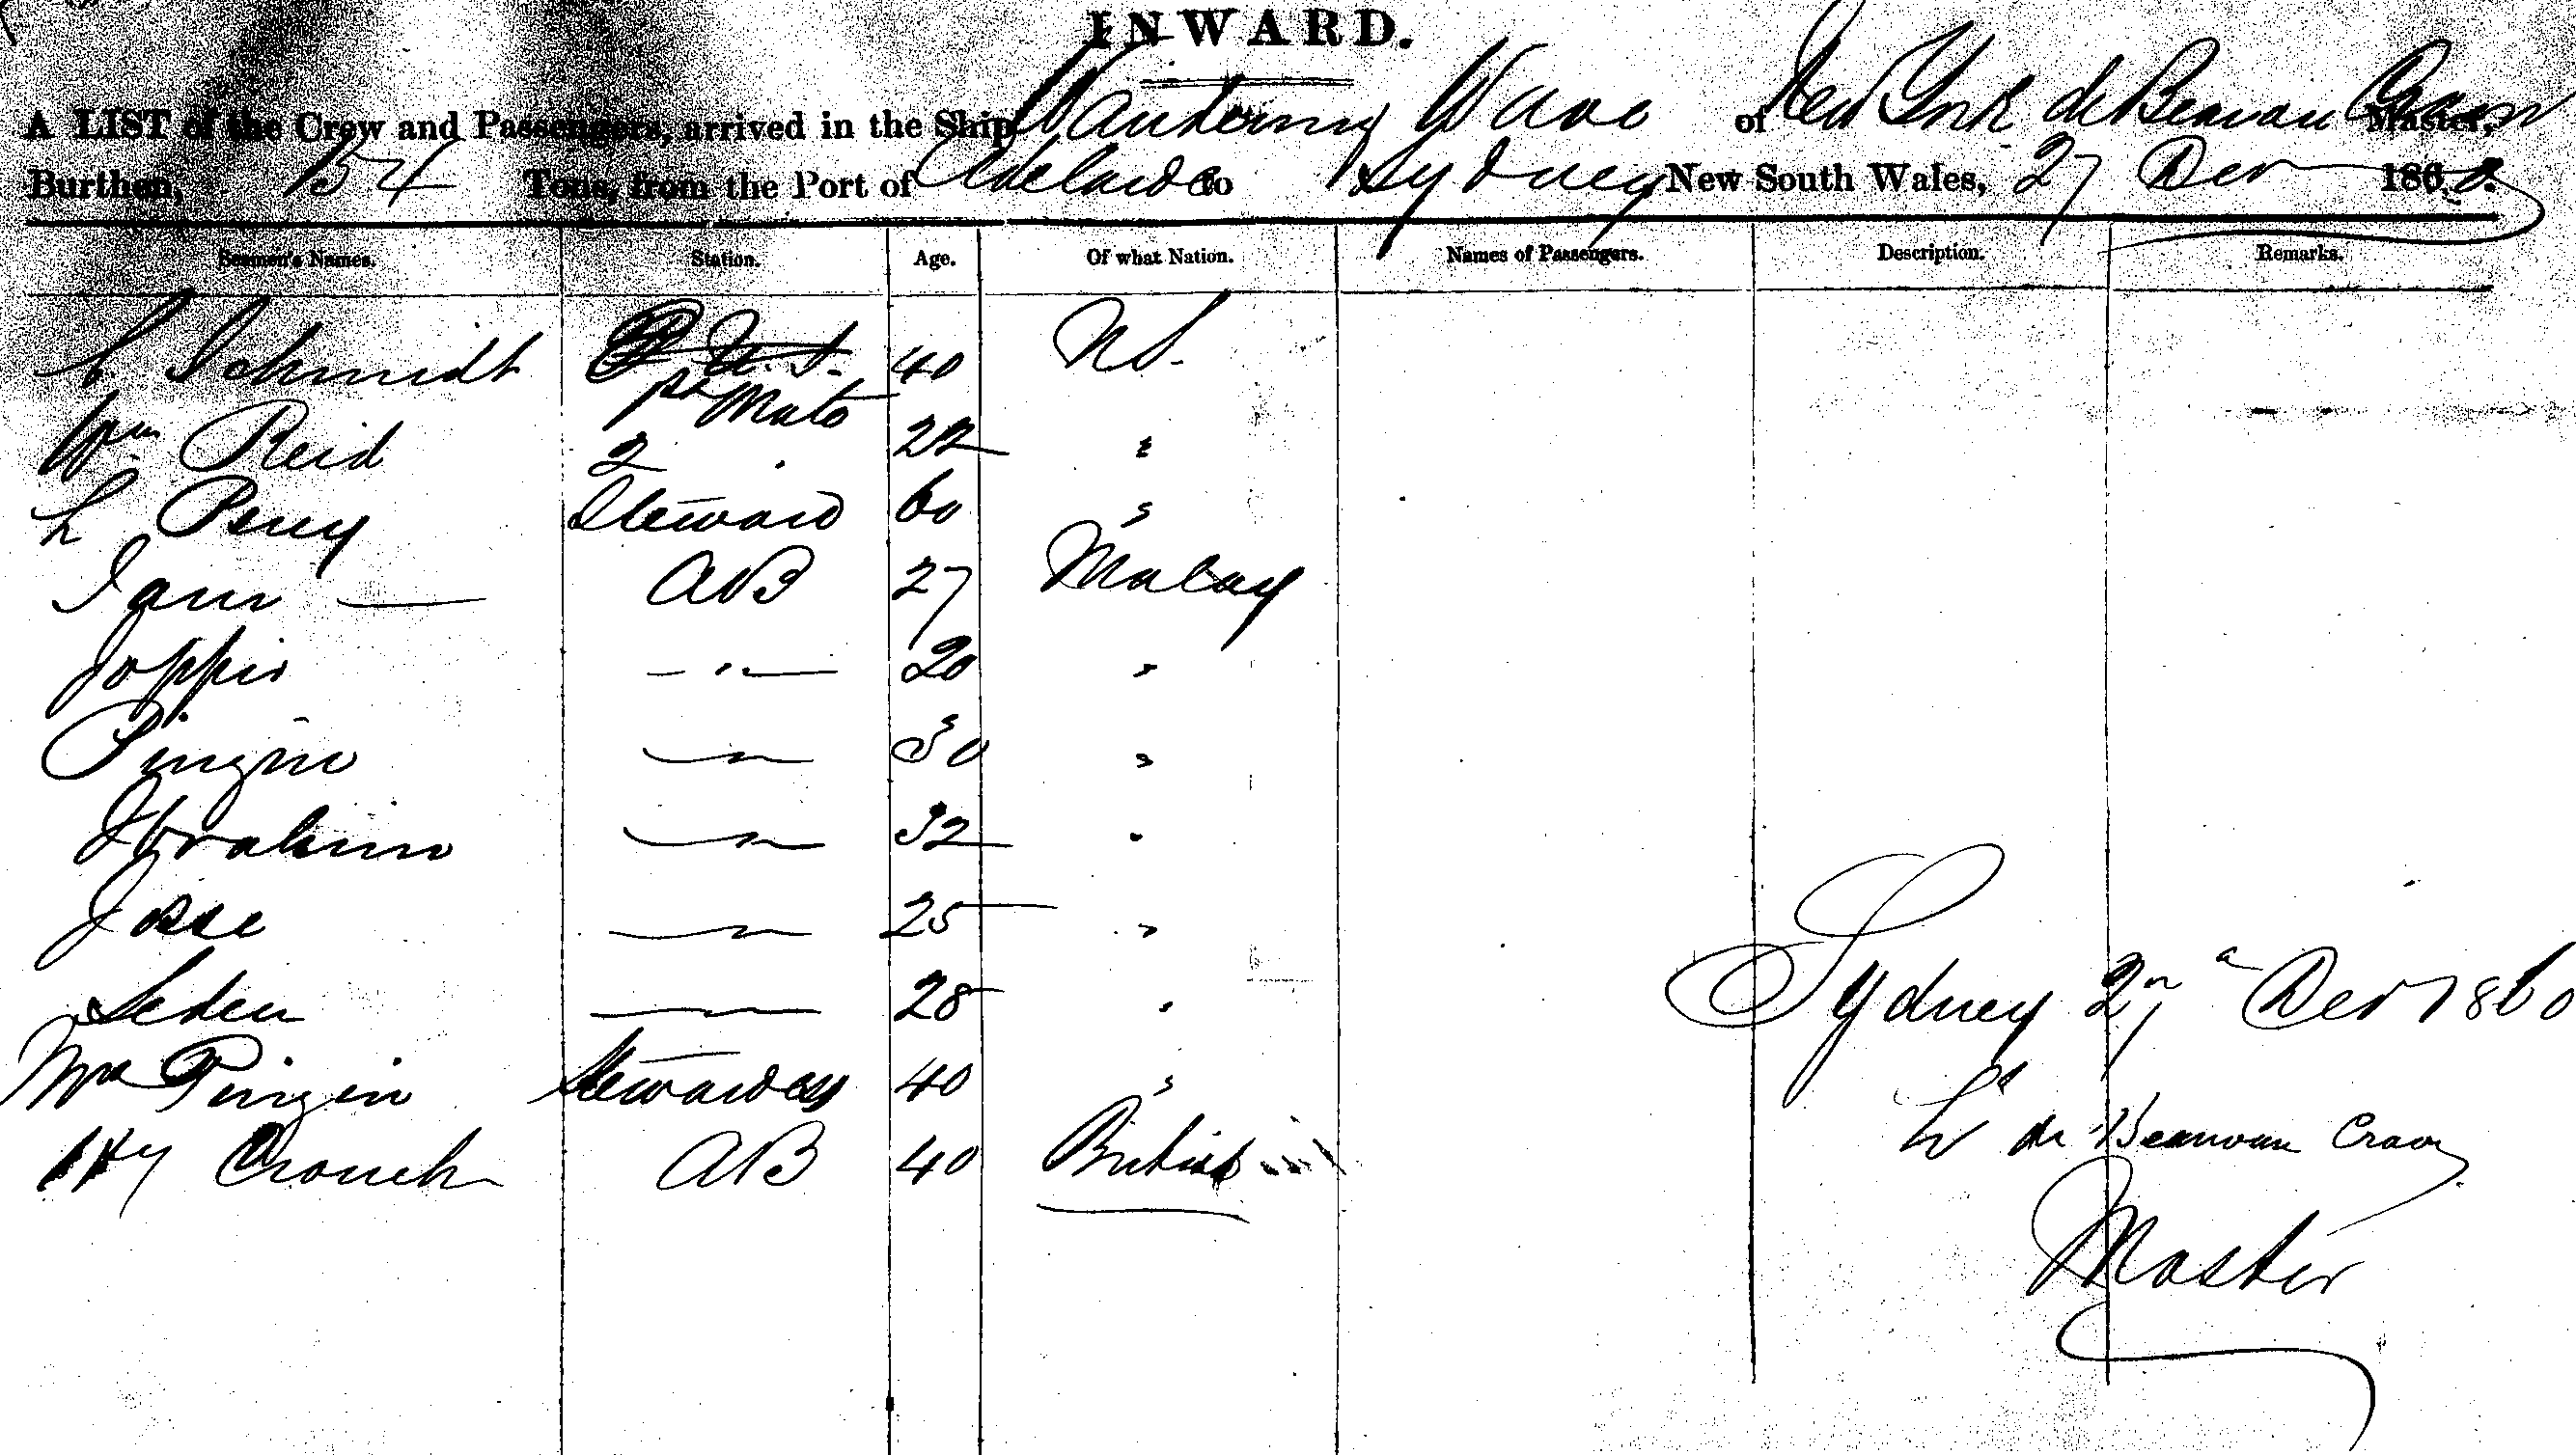 INWARD.
A LIST of the Crew and Passengers, arrived in the Ship Wandering Wave of New York de Beauvan Master,
Burthen, Tons, from the Port of Adelaide to Sydney New South Wales, 27 Decr 1860.
Seamen's Names. Station. Age. Of what Nation. Names of Passengers. Description. Remarks.
Schmidt 40
Mate
Wm Reid 2 22 "
L Percy Steward 60 "
AB 27 Malay
20 "
30 "
Ibrahim 32 "
Josse 25 "
Seden 28 "
Mrs Pingin Stewardess 40 "
Hy Crouch AB 40 British
Sydney 27 Decr 1860
Master